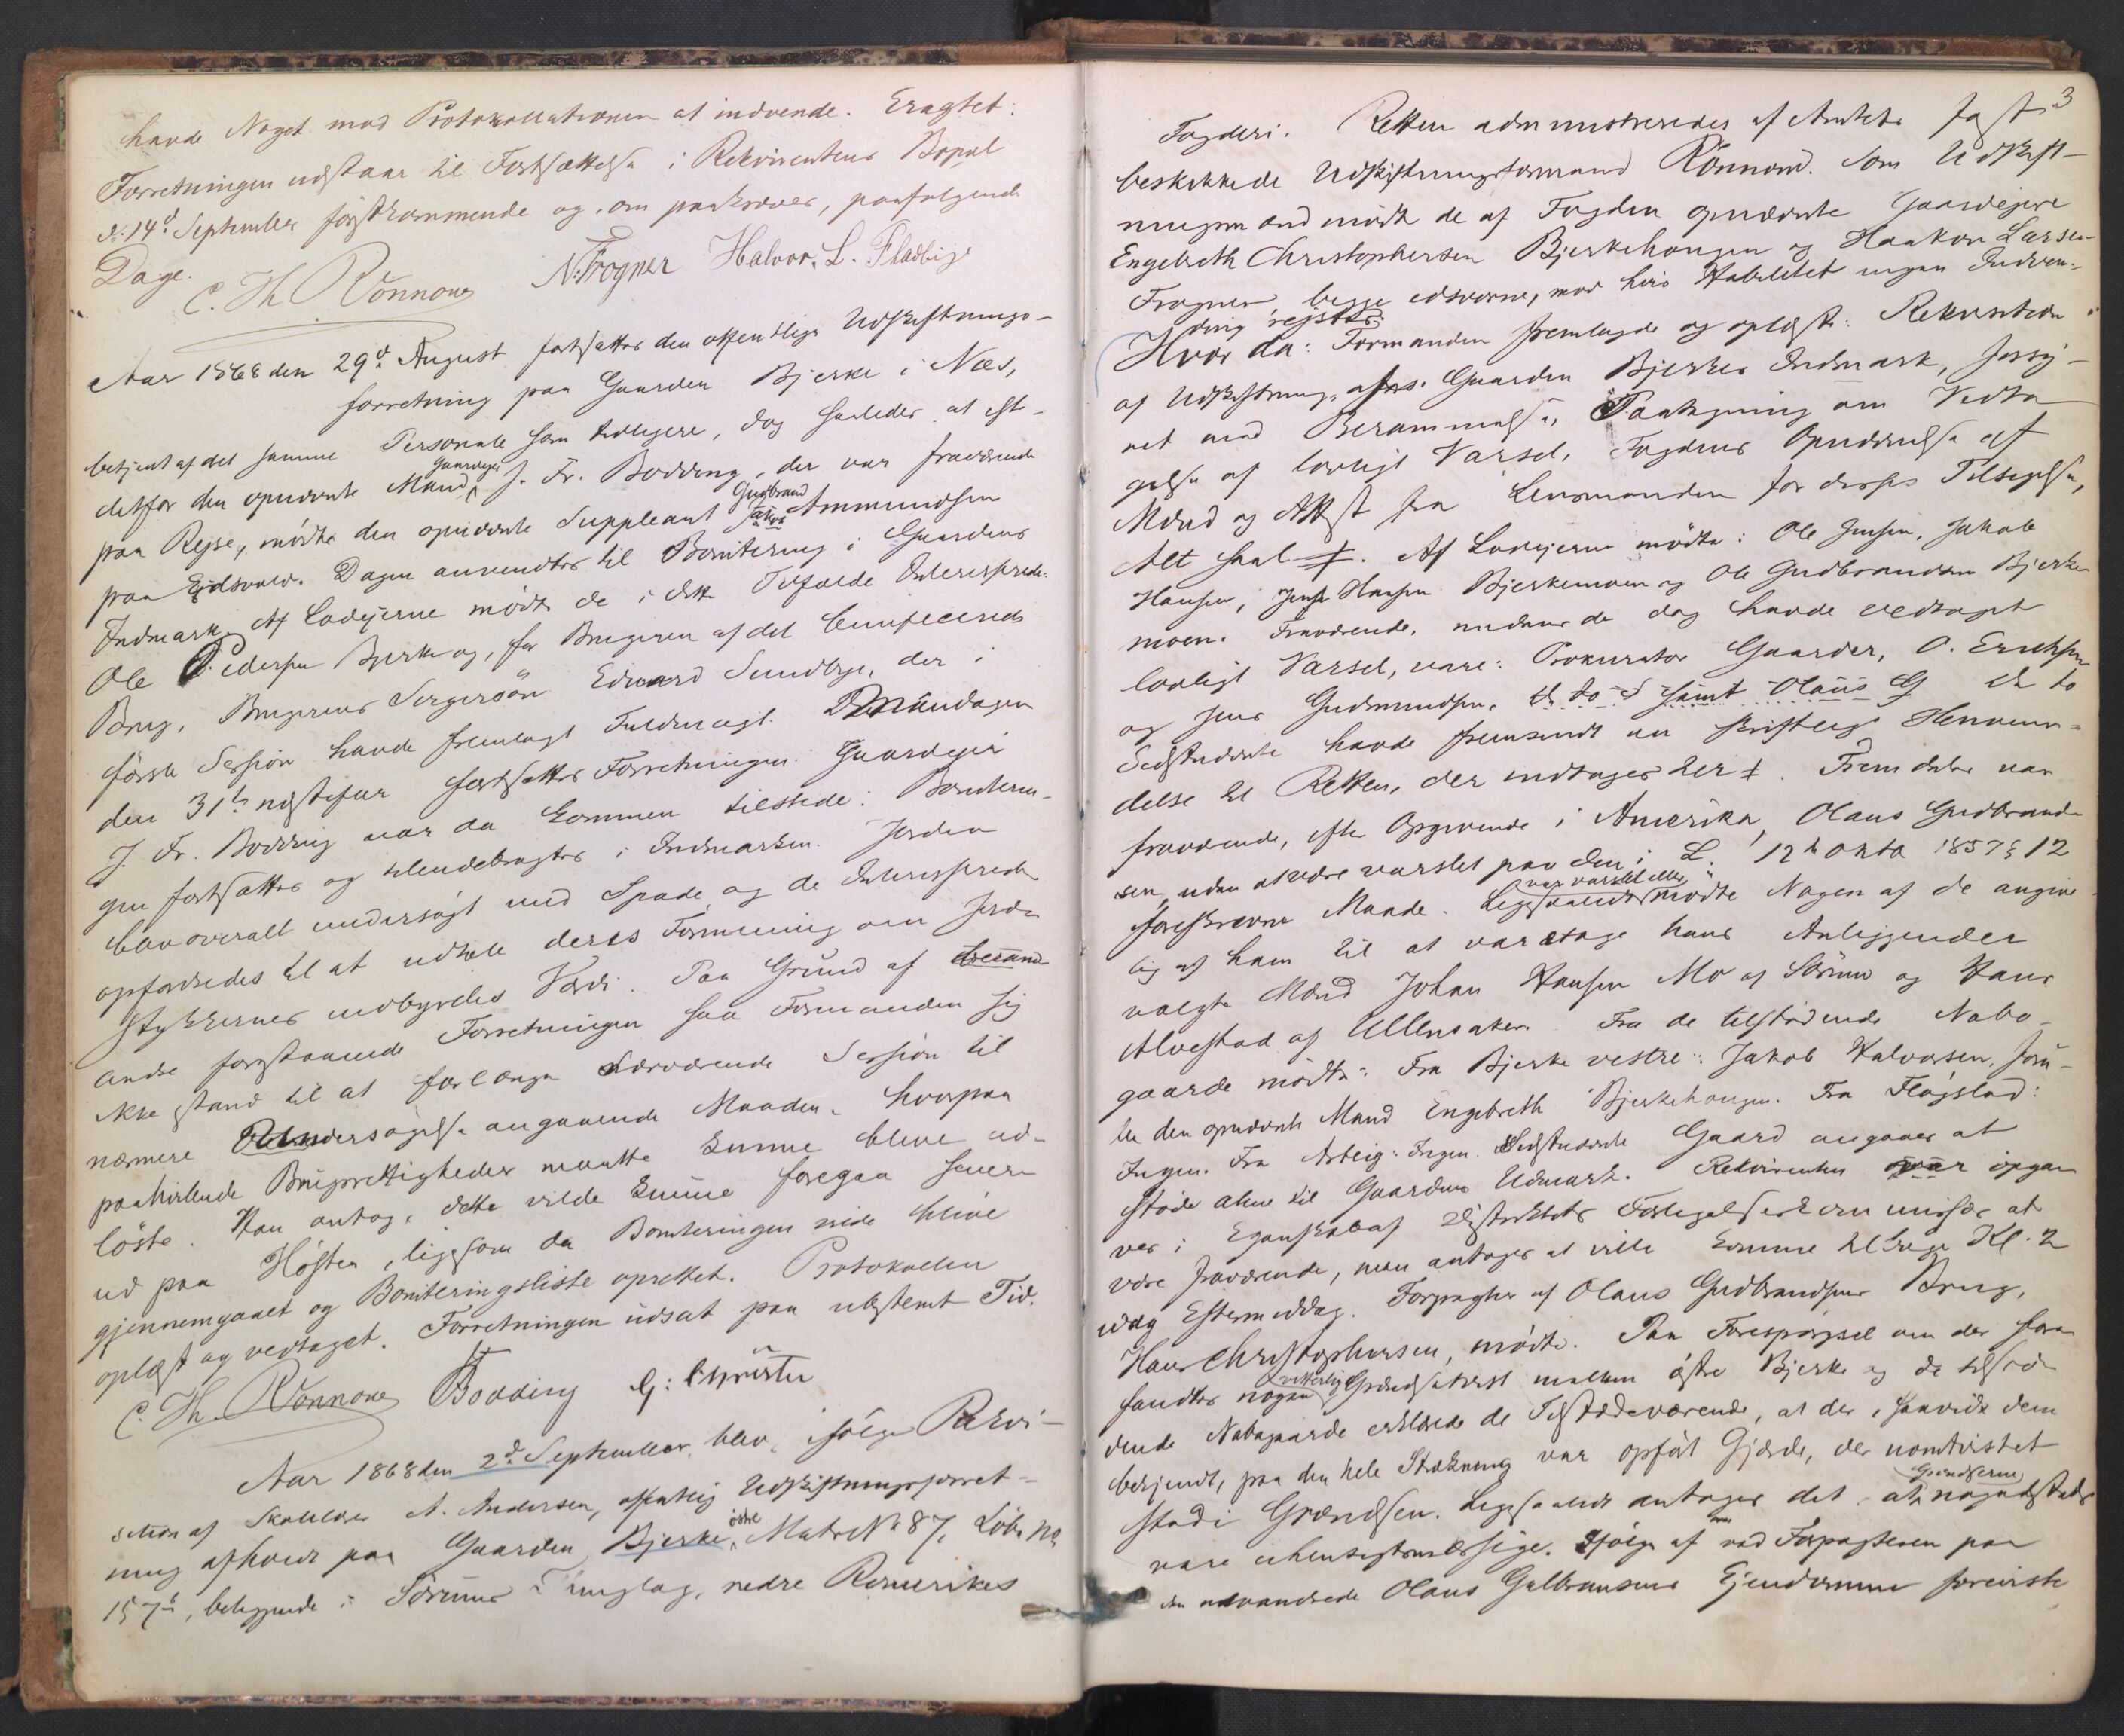 havde Noget mod Protokollationen at indvende. Eragtet:
Forretningen udstaar til Fortsættelse i Rekvirentens Bopæl
d. 14d September førstkommende og, om paakræves, paafølgende
Dage.
C. Th. Rönnow N. Frogner Halvor. L. Fladbye
Aar 1868 den 29d August fortsattes den offentlige Udskiftnings-
forretning paa Gaarden Bjerke i Næs,
betjent af det samme Personale som tidligere, dog saaledes at ist-
detfor den opnævnte Mand, Gaardeier J. Fr. Bodding, der var fraværende
paa Rejse, mødte den opnævnte Suppleant Gudbrand Ammundsen
paa Eidsvold. Dagen anvendtes til Bonitering i Gaardens
Indmark. Af Lodejerne mødte de i dette Tilfælde Interesserede:
Ole Pedersen Bjerke og, for Brugeren af det beneficerede
Brug, Brugerens Svigersøn Edvard Sundbye, der i
første Session havde fremlagt Fuldmagt. Mandagen
den 31te næstefter fortsattes Forretningen. Gaardejer
J. Fr. Bodding var da kommen tilstede. Boniterin-
gen fortsattes og tilendebragtes i Indmarken. Jorden
blev overalt undersøgt med Spade, og de Interesserede
opfordredes til at udtale deres Formening om Jord-
stykkernes indbyrdes Værdi. Paa Grund af
andre forestaaende Forretninger saa Formanden sig
ikke istand til at forlænge nærværende Session til
nærmere Undersøgelse angaaende Maaden, hvorpaa
paahvilende Brugsrettigheder maatte kunne blive ud-
løste. Han antog, dette vilde kunne foregaa senere
ud paa Høsten, ligesom da Boniteringen vilde blive
gjennemgaaet og Boniteringsliste oprettet. Protokollen
oplæst og vedtaget. Forretningen udsat paa ubestemt Tid.
C. Th. Rönnow Bodding
Aar 1868 den 2d September blev, ifølge Rekvi-
sition af Skolelærer A. Andersen, offentlig Udskiftningsforret-
ning afholdt paa Gaarden Bjerke østre, Matr No 87, Løbe No
157b, beliggende i Sørum Thinglag, nedre Romerikes
3
Fogderi. Retten administreredes af Amtets fast
beskikkede Udskiftningsformand Rönnow. Som Udskift-
ningsmænd mødte de af Fogden opnævnte Gaardejere
Engebreth Christophersen Bjerkehougen og Haakon Larsen
Frogner, begge edsvorne, mod hvis Habilitet ingen Indven-
ding rejstes.
Hvor da: Formanden fremlagde og oplæste: Rekvisition
af Udskiftning af Gaarden Bjerkes Indmark, forsy-
net med Berammelse, Paategning om Vedta-
gelse af lovligt Varsel, Fogdens Opnævnelse af
Mænd og Attest fra Lensmanden for disses Tilsigelse,
Alt saal. Af Lodejerne mødte: Ole Jensen, Jakob
Hansen, Jens Hansen Bjerkemoen og Ole Gudbrandsen Bjerke-
moen. Fraværende, uedens de dog havde vedtaget
lovligt Varsel, vare: Prokurator Gaarder, O. Erichsen
og Jens Gudmundsen. De to
Sidstnævnte havde fremsendt en skriftlig Henven-
delse til Retten, der indtages her. Fremdeles var
fraværende, efter Opgivende i Amerika, Olaus Gudbrand-
sen, uden at være varslet paa den i L. 12te Okto 1857 § 12
foreskrevne Maade. Ligesaalidt var varslet eller mødte Nogen af de angive-
lig af ham til at varetage hans Anliggender
valgte Mænd Johan Hansen Mo af Sørum og Hans
Alvestad af Ullensaker. Fra de tilstødende Nabo-
gaarde mødte: Fra Bjerke vestre: Jakob Halvorsen, foru-
den den opnævnte Mand Engebreth Bjerkehougen. Fra Fløgstad:
Ingen. Fra Asleig: Ingen. Sidstnævnte Gaard angaves at
støde alene til Gaardens Udmark. Rekvirenten var opga-
ves i Egenskab af
være fraværende, men antages at ville komme tilstede Kl. 2
idag Eftermiddag. Forpagter af Olaus Gudbrandsens Brug,
Hans Christophersen, mødte. Paa Forespørgsel om der fore-
fandtes nogen vitterlig Grændsetvist mellem østre Bjerke og de tilstø-
dende Nabogaarde erklærede de Tilstedeværende, at der, saavidt dem
bekjendt, paa den hele Strækning var opført Gjærde, der uomtvistet
stod i Grændsen. Ligesaalidt antages det, at Grændserne nogetsteds
vare uhensigtsmæssige. Ifølge af ved Forpagteren paa
den udvandrede Olaus Gulbransens Ejendomme foreviste